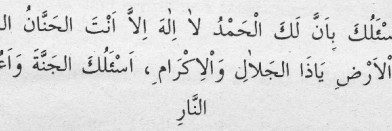 بِاَنَّ لَكَ الْحَمْدُ لاٰ اِلٰهَ اِلاَّ اَنْتَ الحَنَّانُ
يَاذَا الجَلاٰلِ وَاْلاِكْرٰامِ، اَسْئَلُكَ الجَنَّةَ
النَّارِ